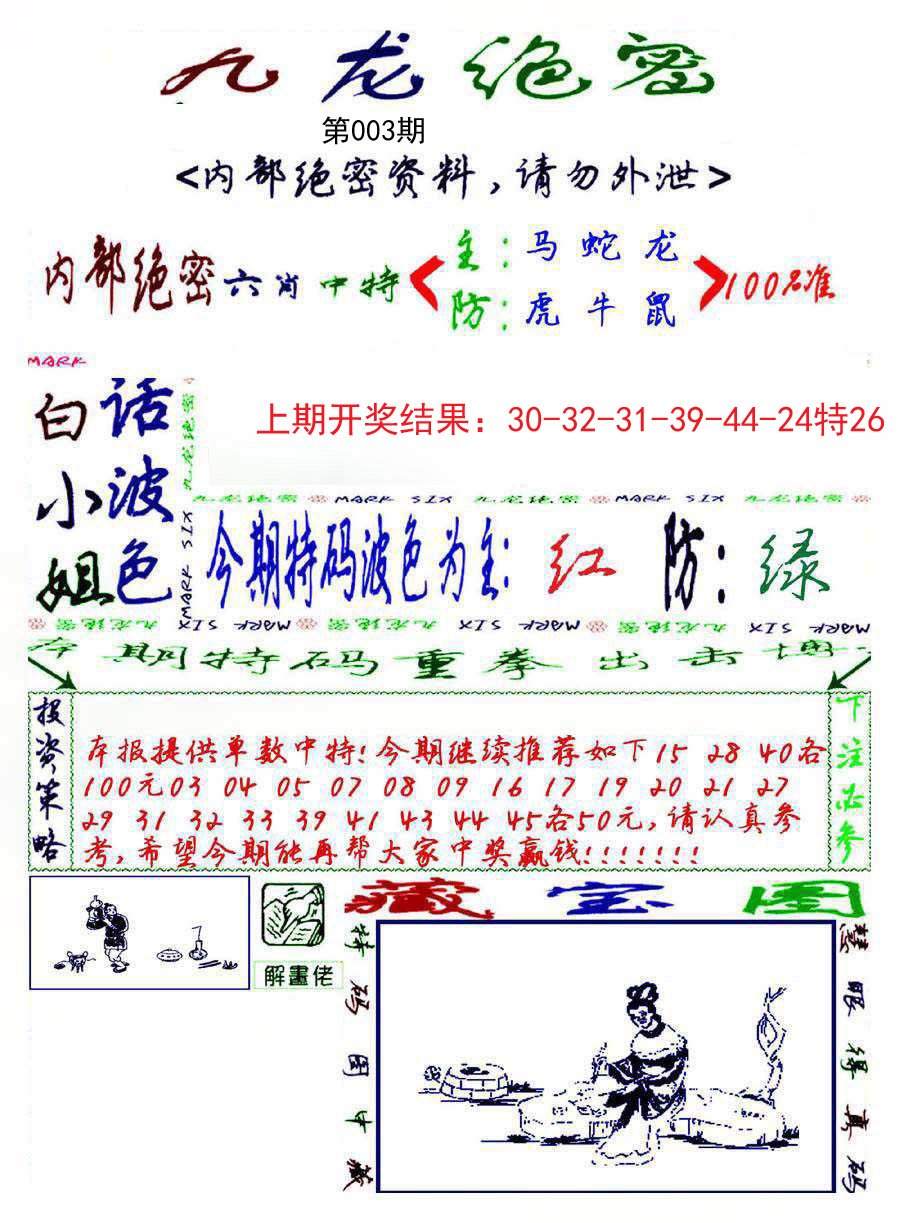 九龙绝密
第003期
<内部绝密资料,请勿外泄>
内部绝密六肖中特
主:马 蛇 龙
防:虎 牛 鼠
100%准
MARK
白小姐
话波色
九龙绝密
MARK SIX
上期开奖结果：30-32-31-39-44-24特26
九龙绝密 MARK SIX 九龙绝密 MARK SIX 九龙绝密
今期特码波色为主: 红 防: 绿
九龙绝密 MARK SIX 九龙绝密 MARK SIX 九龙绝密 MARK SIX
本期特码重拳出击
投资策略
本报提供单数中特!今期继续推荐如下15 28 40各
100元03 04 05 07 08 09 16 17 19 20 21 27
29 31 32 33 39 41 43 44 45各50元,请认真参
考,希望今期能再帮大家中奖赢钱!!!!!!!
下注必参
解畫佬
藏宝图
特码图中藏
慧眼得真码